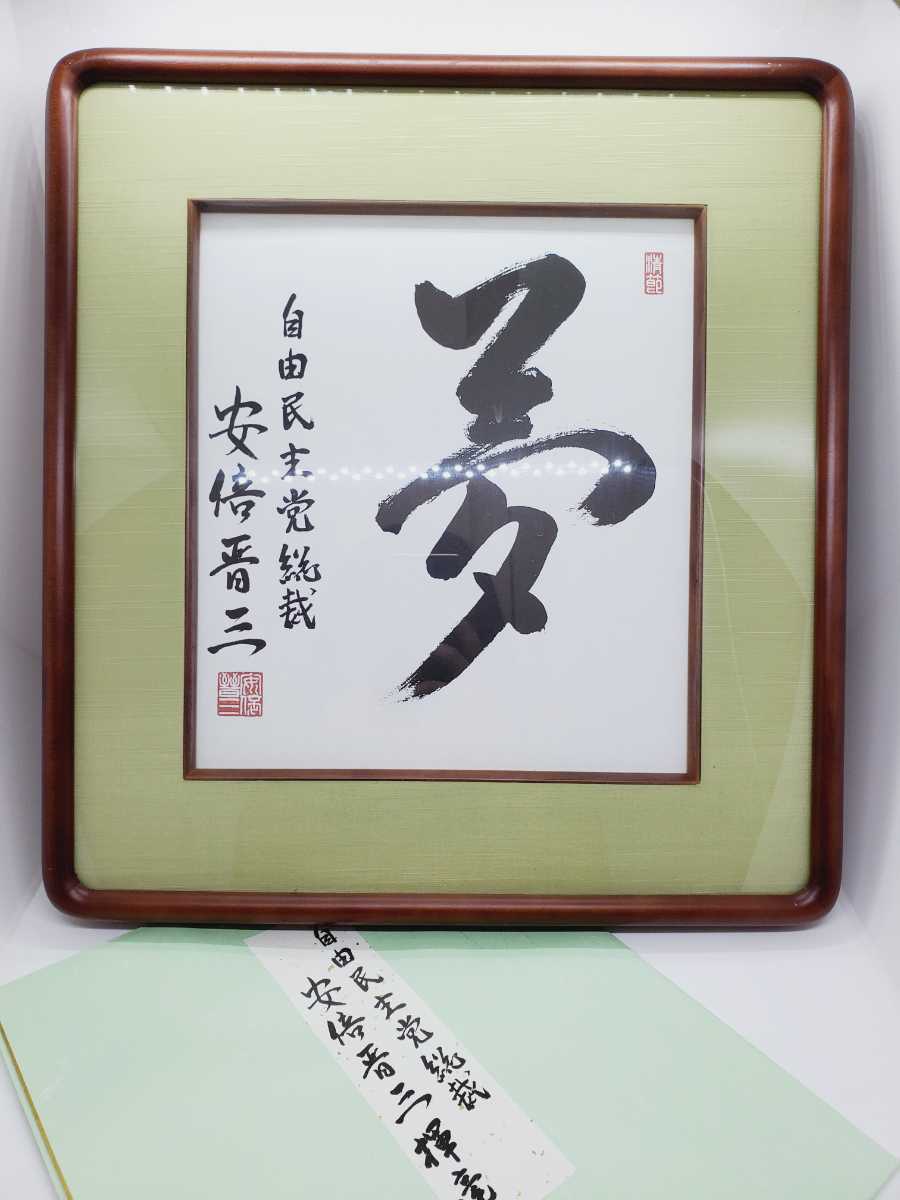 清節
夢
自由民主党総裁
安倍晋三
安倍晋三
自由民主党総裁
安倍晋三揮毫